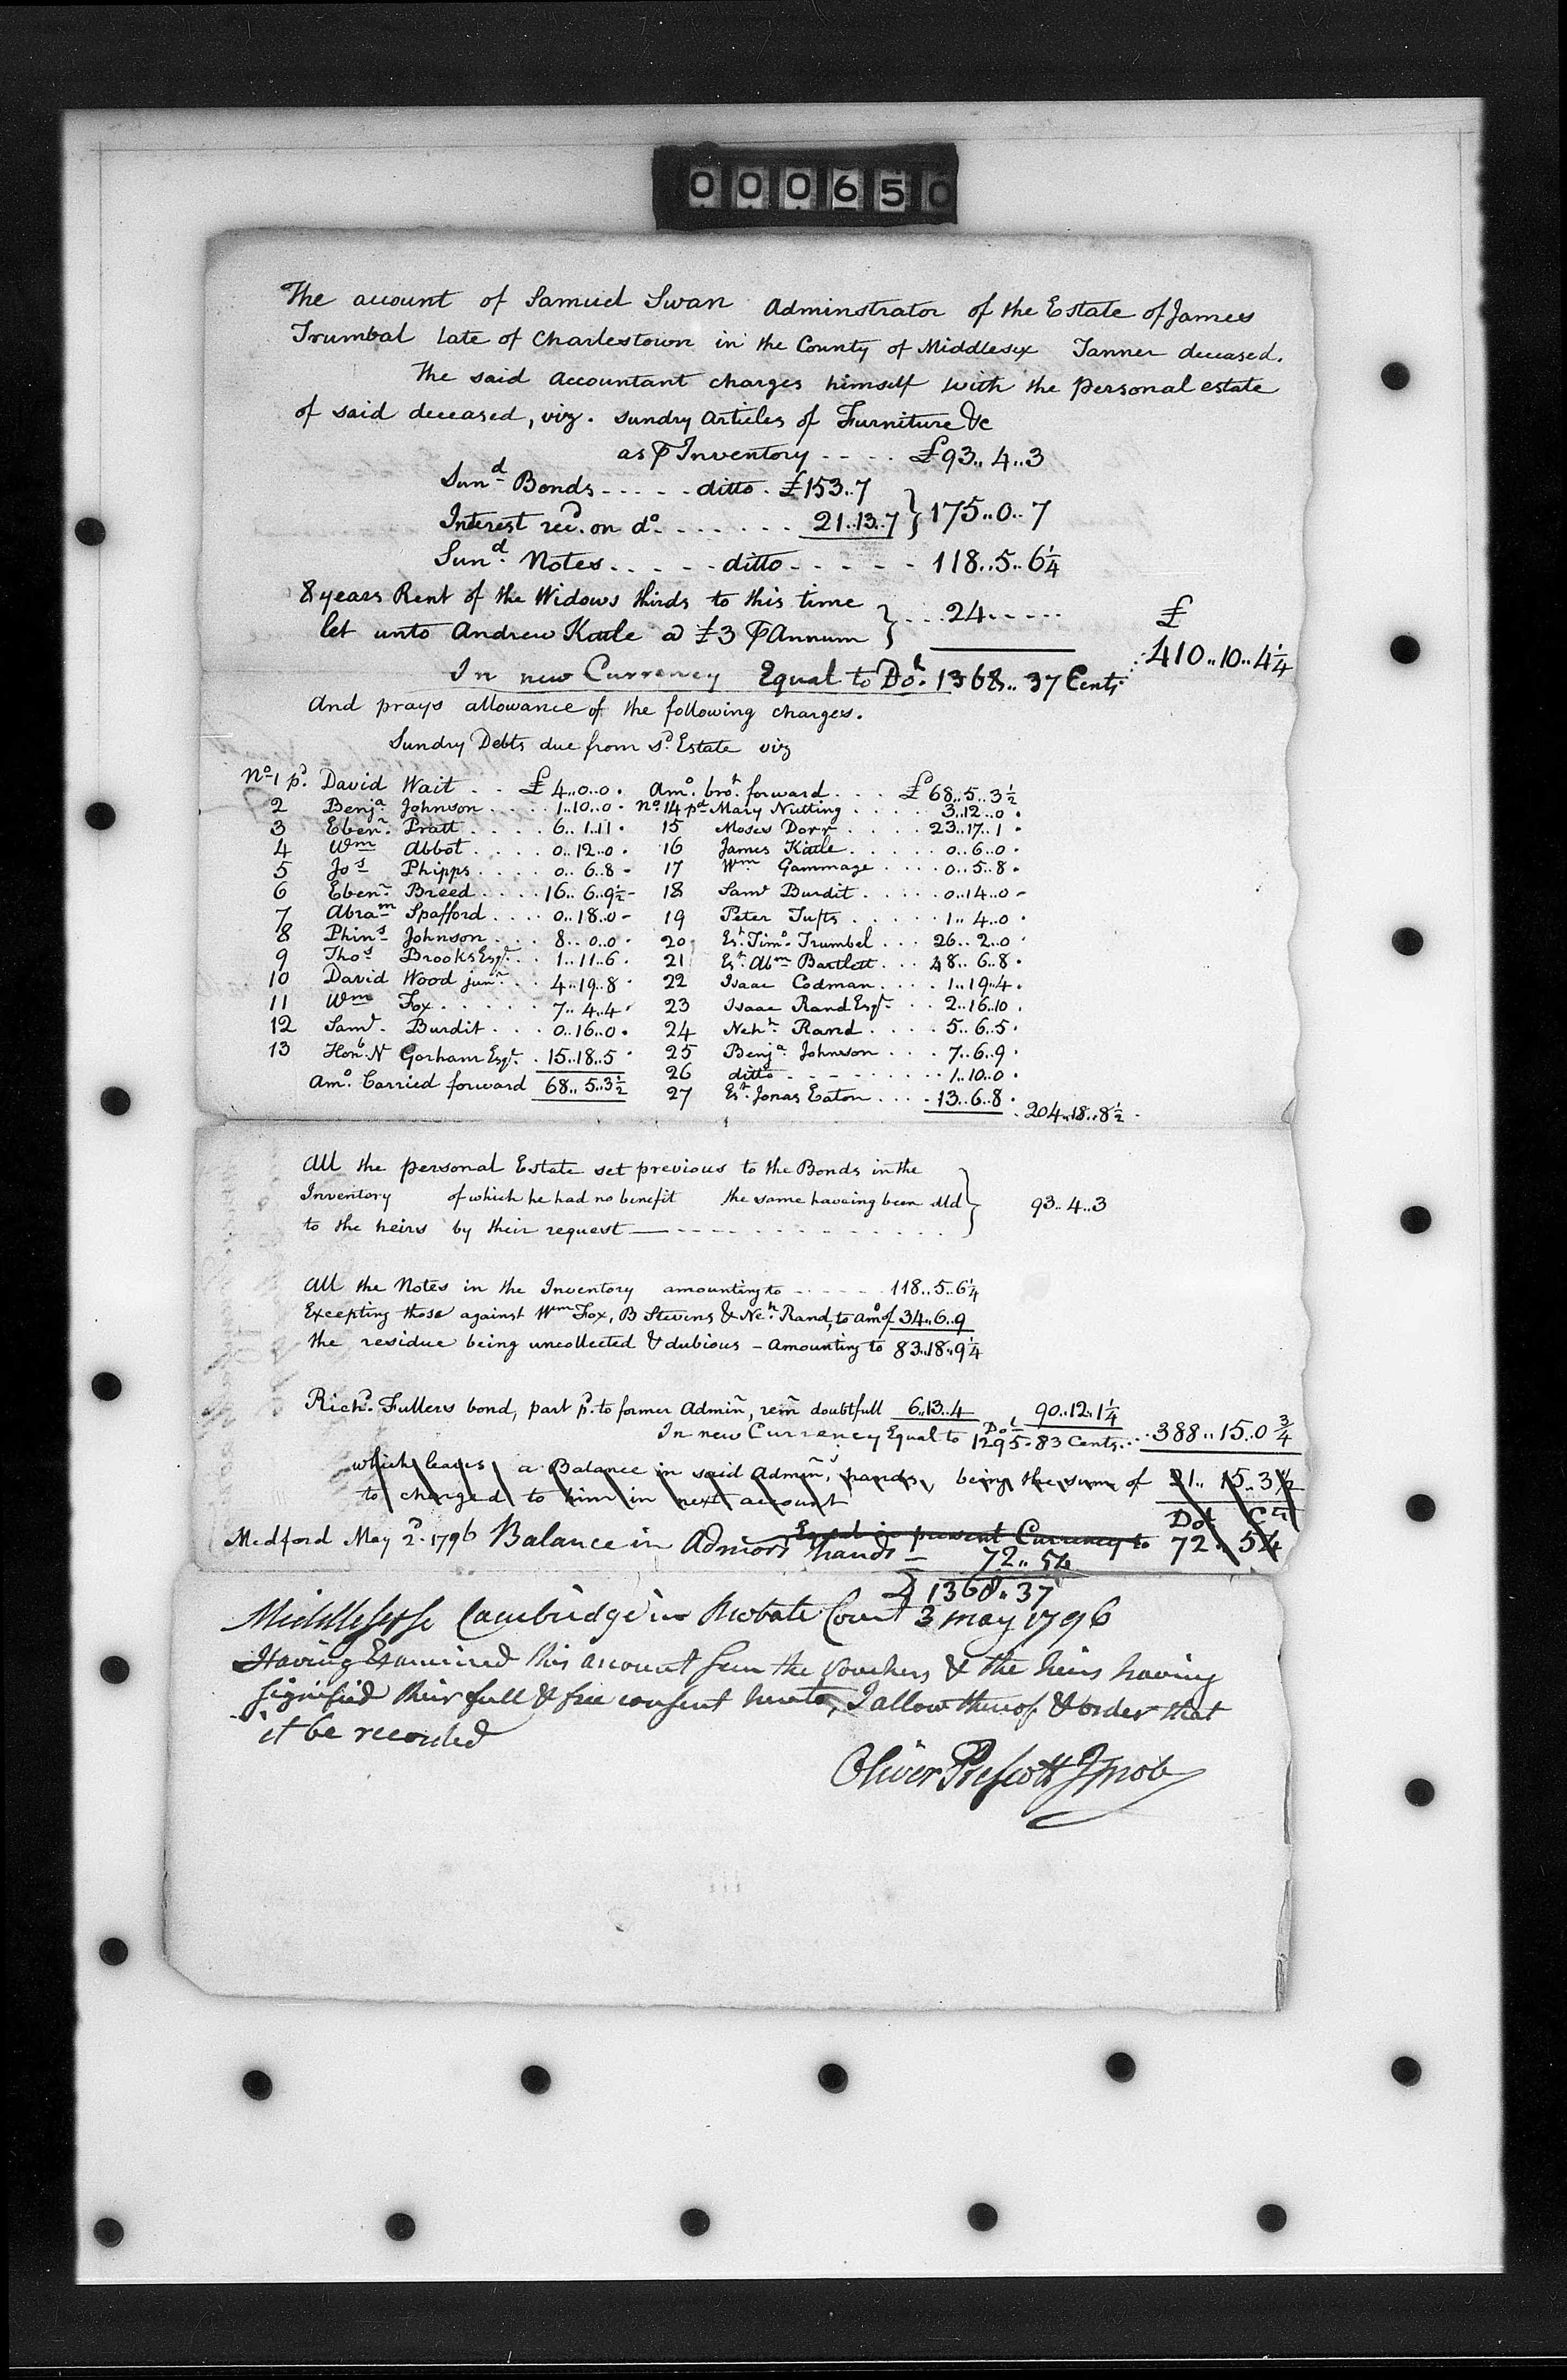 000650
The account of Samuel Swan Adminstrator of the Estate of James
Trumbal Late of Charlestown in the County of Middlesex Tanner deceased.
The said Accountant charges himself with the personal estate
of said deceased, viz. Sundry Articles of Furniture &c
as ⅌ Inventory - - - - £93.. 4..3
Sund. Bonds - - - - - ditto. £153..7
Interest recd. on do. - - - - - - - 21..13..7 } 175..0..7
Sund. Notes. - - - - ditto - - - - - 118..5..6¼
8 years Rent of the Widows thirds to this time
let unto Andrew Kettle @ £3 ⅌ Annum } . . . 24 . . . . .
£
410..10..4¼
In new Currency Equal to Dol. 1368.. 37 Cents
And prays allowance of the following charges.
Sundry Debts due from sd. Estate viz
No. 1 pd. David Wait . . £ 4..0..0. Amo. brot. forward . . . £68..5..3½
2 Benja. Johnson . . . . 1..10..0. No. 14 pd. Mary Nutting . . . . 3..12..0.
3 Ebenr. Pratt . . . . 6..1..11. 15 Moses Dorr . . . . 23..17..1.
4 Wm Abbot . . . . 0..12..0. 16 James Kettle . . . . . 0..6..0.
5 Jos Phipps . . . . 0..6..8 - 17 Wm Gammage . . . . 0..5..8.
6 Ebenr. Breed . . . . 16..6..9½ - 18 Saml Burdit . . . . . 0..14..0 -
7 Abram Spafford . . . . 0..18..0 - 19 Peter Tufts . . . . . 1..4..0.
8 Phins Johnson . . . 8..0..0. 20 Est. Timo. Trumbel . . . 26..2..0.
9 Thos Brooks Esqr. . . 1..11..6. 21 Est. Abm Bartlett . . . 48..6..8.
10 David Wood junr. . . 4..19..8. 22 Isaac Codman . . . . 1..19..4.
11 Wm Fox . . . . . 7..4..4. 23 Isaac Rand Esqr. . . 2..16..10.
12 Saml. Burdit . . . 0..16..0. 24 Neh. Rand . . . . 5..6..5.
13 Honb. N Gorham Esqr. . 15..18..5. 25 Benja. Johnson . . . 7..6..9.
26 ditto - - - - - - - 1..10..0.
Amo. Carried forward 68..5..3½ 27 Est. Jonas Eaton . . . . 13..6..8. 204..18..8½.
All the personal Estate set previous to the Bonds in the
Inventory of which he had no benefit the same haveing been dld } 93..4..3
to the heirs by their request
All the Notes in the Inventory amounting to - - - - - 118..5..6¼
Excepting those against Wm Fox, B Stevens & Neh. Rand, to amo of 34..6..9
the residue being uncollected & dubious - amounting to 83..18..9¼
Richd. Fullers bond, part pd. to former Admin, rem doubtfull 6..13..4 90..12..1¼
In new Currency Equal to Dol 1295.83 Cents. . . 388..15..0¾
which leaves a Balance in said Admins, hands, being the sum of 21..15..3½
to charged to him in next account
Dol Cts
Equal in present Currency to 72.. 54
Medford May 2d. 1796 Balance in Admors hands = 72.. 54
1368..37
Middlesex ss Cambridge in Probate Court 3 May 1796
Having Examined this account seen the vouchers & the heirs having
signified their full & free consent hereto, I allow thereof & order that
it be recorded
Oliver Prescott J prob